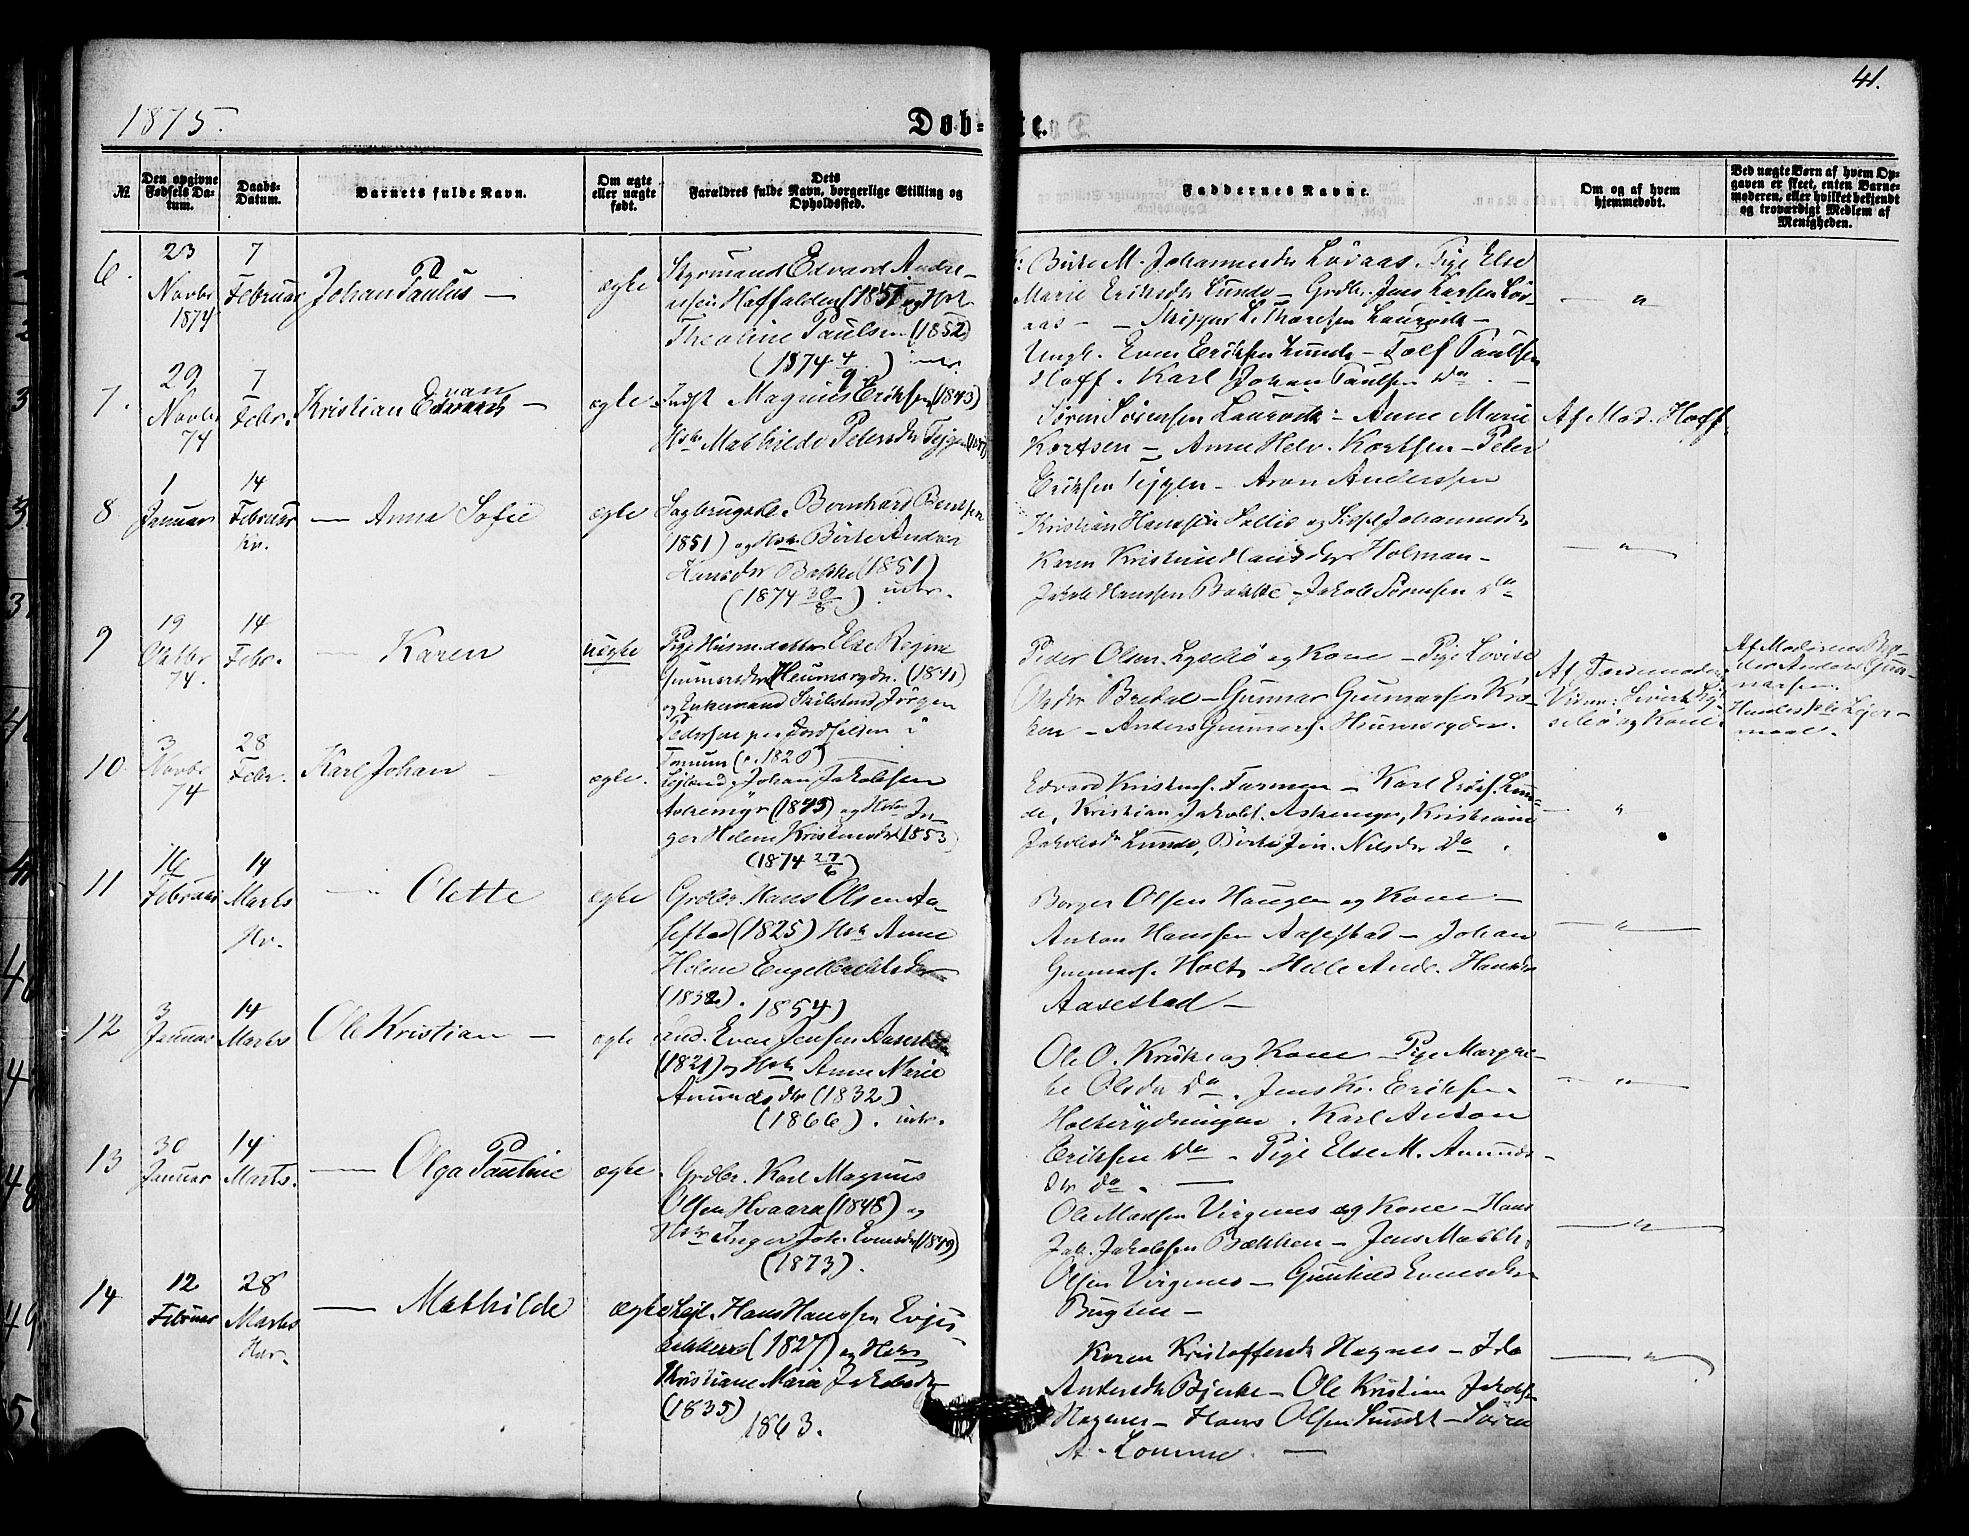 41.
1875.
Døb- te.
№
Den opgivne Fødsels Datum.
Daabs-Datum.
Barnets fulde Navn.
Om ægte eller uægte født.
Dets Forældres fulde Navn, borgerlige Stilling og Opholdssted.
Faddernes Navne.
Om og af hvem hjemmedøbt.
Ved uægte Børn af hvem Opgaven er skeet, enten Barnemoderen, eller hvilket bekjendt og troværdigt Medlem af Menigheden.
6.
23 Novbr 1874
7 Februar
Johan Paulus —
ægte
Styrmand Edvard Andre-
Haffalden (1851) og Hst
Theoline Paulsen (1852)
(1874 4/9)
Birte M. Johannesdr Løvaas. Pige Else
Marie Eriksdr Lunde — Grdbr. Jens Larsen Løv-
aas — Skipper L. Thoresen Laurvik —
Ungk. Even Eriksen Lunde — Tolf Paulsen
Hoff. Karl Johan Paulsen do. —
— " —
7.
29 Novbr 74
7 Febr.
Kristian Edvard
ægte
Indst Magnus Eriksen (1843)
Hstr Mathilde Petersdr Teigen
Søren Sørensen Laurvik: — Anne Marie
Kortsen — Anne Helv. Kortsen — Peter
Eriksen Teigen — Aron Anderssen
Af Mad. Hoff.
8
1 Januar
14 Februar Kv.
— Anna Sofie
ægte
Sagbrugsarb. Bernhard Berntsen
(1851) og Hstr. Birte Andrea
Hansdr Bakke (1851)
(1874 30/8)
Kristian Hanssen Sollie og Sissel Johannesdr
Karen Kristine Hansdr Holman —
Jakob Hanssen Bakke — Jakob Sørensen do
— " —
9
19 Oktbr 74.
14 Febr.
— Karen
uægte
Pige Husm.datter Else Regine
Gunnarsdr Heumsrydn. (1841)
og Enkemand Jørgen
Pedersen
(1820)
Peder Olsen Lysebø og Kone — Pige Lovise
Olsdr Brekke — Gunnar Gunnarsen
— Anders Gunnars. Heumsrydn.
Af Jordemoder
og Kone.
Af Moderens
Anders Gun-
narsen.
Hendes Leier-
maal.
10.
3 Novbr 74
28 Febr.
Karl Johan —
ægte.
Johan Jakobsen
Askemyr (1845) og Hstr In-
ger Helene Kristensdr (1853)
(1874 27/6)
Edvard Kristens. Furmon — Karl Eriks. Lun-
de, Kristian Jakobs. Askemyr, Kristiane
Jakobsdr Lunde, Birte Jn. Nilsdr do.
— " —
11
16 Februar
14 Marts Hv.
— Olette
ægte
Grdbr. Hans Olsen Aa-
sestad (1825) Hstr Anne
Helene Engelbretsdr
(1832). 1854)
Borger Olsen Haugen og Kone —
Anton Hanssen Aasestad — Johan
Gunnars. Holt — Helle Andr. Hansdr
Aasestad —
— " —
12
3 Januar
14 Marts
Ole Kristian —
ægte
Ind. Even Jensen Aasestad
(1821) og Hstr Anne Marie
Amundsdtr (1832)
(1866). intr.
Ole O. Krøke og Kone — Pige Margre-
te Olsdr do. Jens Kr. Eriksen
Holtsrydningen. Karl Anton
Eriksen do — Pige Else M. Amunds-
dr do. —
— " —
13
30 Januar
14 Marts.
— Olga Pauline
ægte
Grdbr. Karl Magnus
Olsen Hvaara (1848) og
Hstr Inger Joh. Evensdr (1849)
(1873).
Ole Madsen Virgenes og Kone — Hans
Jak. Jakobsen Bækken — Jens Math.
Olsen Virgenes — Gunhild Evensdr
Bugten —
— " —
14
12 Februar
28 Marts Hv.
— Mathilde
ægte
Leil. Hans Hanssen Evjes-
bakken (1827) og Hstr
Kristiane Marie Jakobsdr
(1835)
1863.
Karen Kristoffersdr Hagnes — Ida
Andersdr Bjerke — Ole Kristian Jakobs.
Hagnes — Hans Olsen Sundet — Søren
A. Lomme. —
— " —